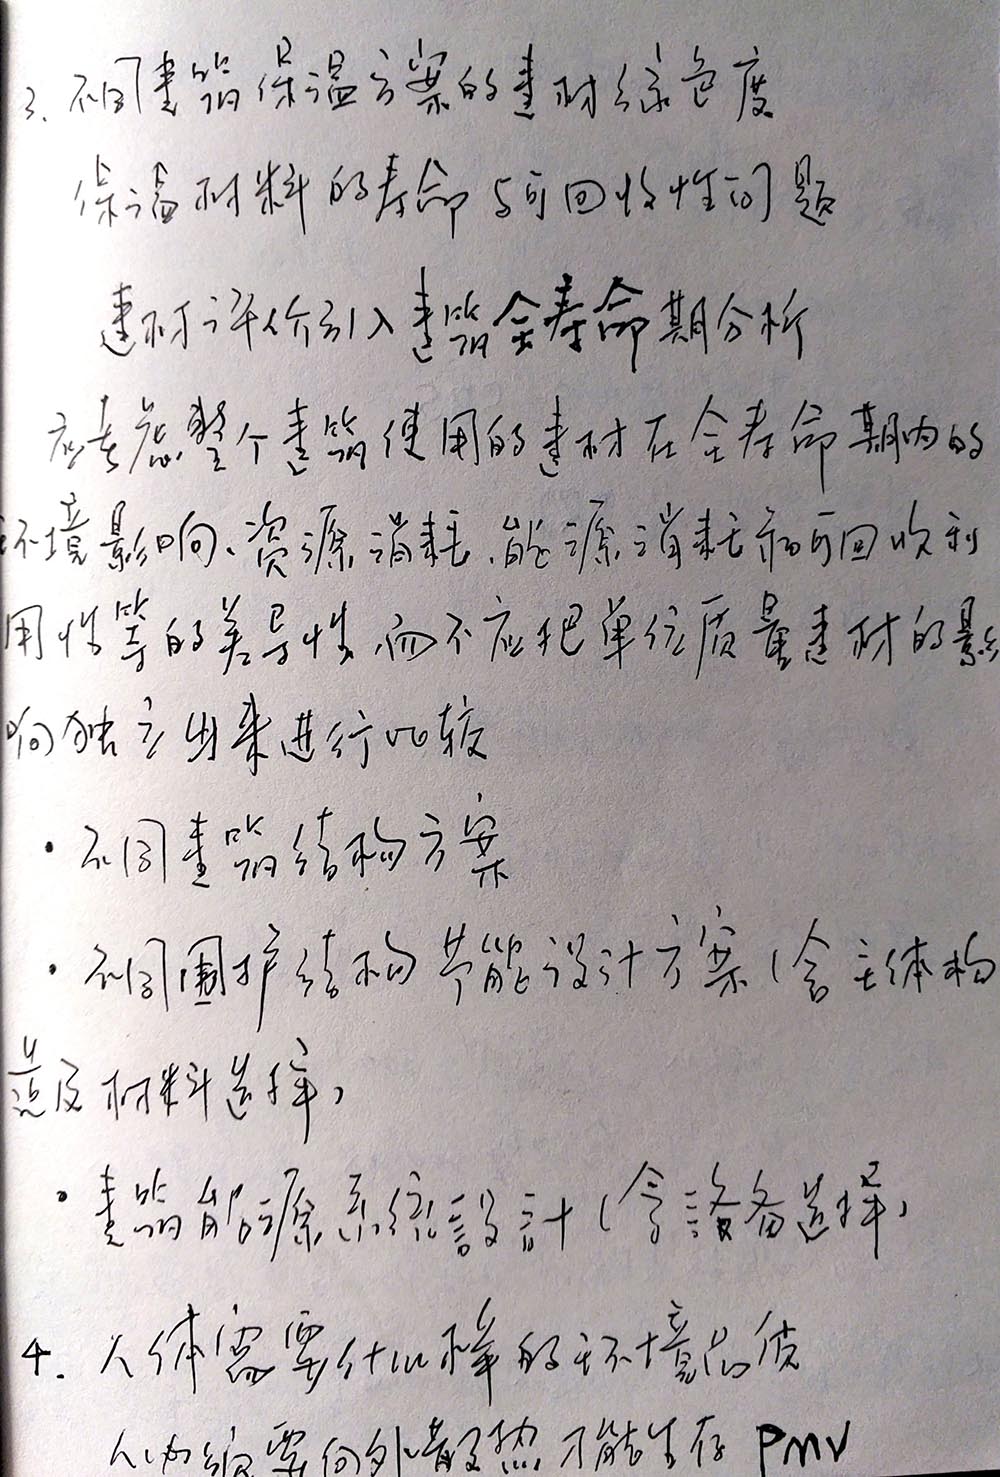 3. 不同建筑保温方案的建材绿色度
保温材料的寿命与可回收性问题
建材评价引入建筑全寿命期分析
应考虑整个建筑使用的建材在全寿命期内的
环境影响、资源消耗、能源消耗和可回收利
用性等的差异性,而不应把单位质量建材的影
响独立出来进行比较
· 不同建筑结构方案
· 不同围护结构节能设计方案(含主体构
造及材料选择)
· 建筑能源系统設計(含設备选择)
4. 人体需要什么样的环境品质
人必须要向外散热才能生存 PMV